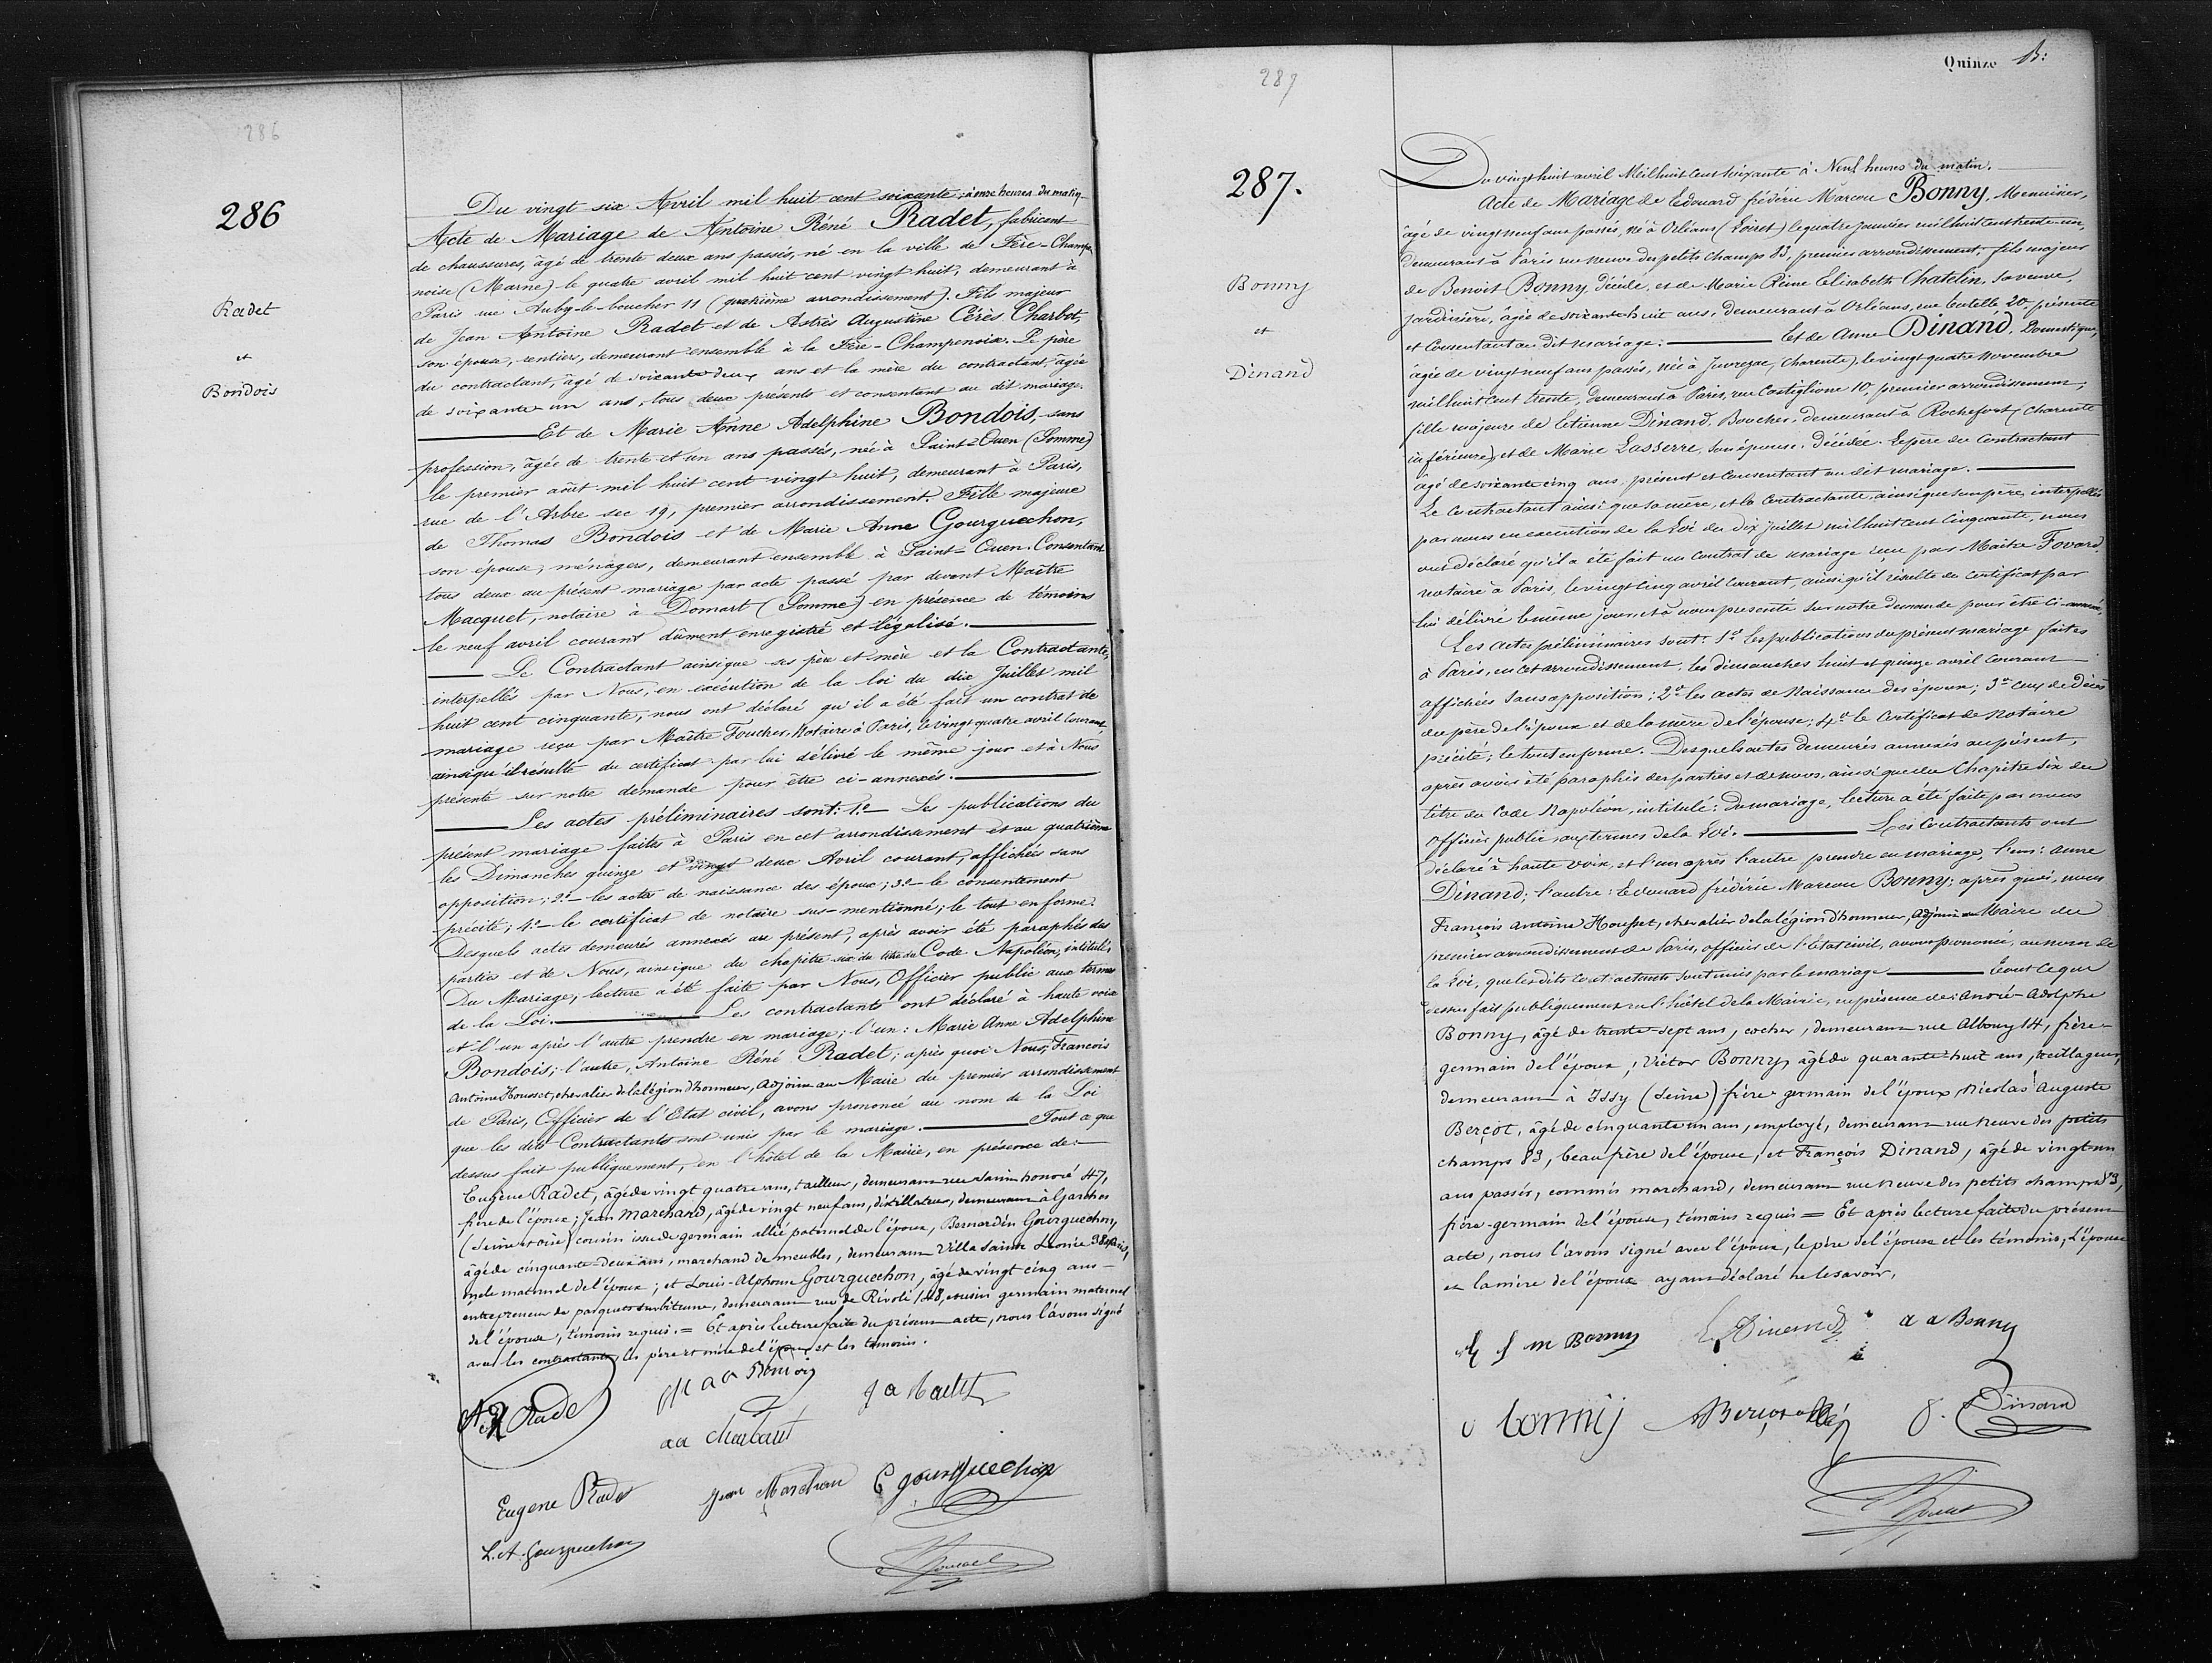 286
286
Radet
et
Bondois
Du vingt six Avril mil huit cent soixante; à onze heures du matin
Acte de Mariage de Antoine Réné Radet, fabricant
de chaussures, âgé de trente deux ans passés, né en la ville de Fère-Champe
noise (Marne) le quatre avril mil huit cent vingt huit, demeurant à
Paris rue Auby-le-boucher 11 (quatrième arrondissement). Fils majeur
de Jean Antoine Radet et de Astrès Augustine Cérès Charbot,
son épouse, rentiers, demeurant ensemble à la Fère-Champenoix. Le père
du contractant, âgé de soixante deux ans et la mère du contractant, âgée
de soixante un ans, tous deux présents et consentant au dit mariage.
Et de Marie Anne Adelphine Bondois, sans
profession, âgée de trente et un ans passés, née à Saint-Ouen (Somme)
le premier août mil huit cent vingt huit, demeurant à Paris,
rue de l'Arbre sec 19, premier arrondissement. Fille majeure
de Thomas Bondois et de Marie Anne Gourguechon,
son épouse, ménagers, demeurant ensemble à Saint-Ouen. Consentant
tous deux au présent mariage par acte passé par devant Maître
Macquet, notaire à Domart (Somme) en présence de témoins
le neuf avril courant dûment enregistré et légalisé.
Le Contractant ainsique ses père et mère et la Contractante,
interpellés par Nous, en exécution de la loi du dix Juillet mil
huit cent cinquante, nous ont déclaré qu'il a été fait un contrat de
mariage reçu par Maître Foucher, Notaire à Paris, le vingt quatre avril courant,
ainsiqu'il résulte du certificat par lui délivré le même jour et à Nous
présenté sur notre demande pour être ci-annexés.
Les actes préliminaires sont: 1º Les publications du
présent mariage faites à Paris en cet arrondissement et au quatrième
les Dimanches quinze et vingt deux Avril courant, affichées sans
opposition; 2º les actes de naissance des époux; 3º le consentement
précité; 4º le certificat de notaire sus-mentionné; le tout en forme.
Desquels actes demeurés annexés au présent, après avoir été paraphés des
parties et de Nous, ainsique du chapitre six du titre du Code Napoléon, intitulés
Du Mariage, lecture a été faite par Nous, Officier public aux termes
de la Loi. Les contractants ont déclaré à haute voix
et l'un après l'autre prendre en mariage; l'un: Marie Anne Adelphine
Bondois; l'autre, Antoine Réné Radet; après quoi Nous, François
Antoine Housset, chevalier de la légion d'honneur, Adjoint au Maire du premier arrondissement
de Paris, Officier de l'Etat civil, avons prononcé au nom de la Loi
que les dits Contractants sont unis par le mariage. Tout ce que
dessus fait publiquement, en l'hôtel de la Mairie, en présence de:
Eugène Radet, âgé de vingt quatre ans, tailleur, demeurant rue Saint honoré 47,
frère de l'époux; Jean Marchand, âgé de vingt neuf ans, distillateur, demeurant à Garches
(Seine et oise) cousin issu de germain allié paternel de l'époux, Bernardin Gourguechon,
âgé de cinquante-deux ans, marchand de meubles, demeurant Villa Sainte Léonie 38 Paris,
oncle maternel de l'époux; et Louis-Alphonse Gourguechon, âgé de vingt cinq ans
entrepreneur de parquets sur bitume, demeurant rue de Rivoli 148, cousin germain maternel
de l'épouse, témoins requis. = Et après lecture faite du présent acte, nous l'avons signé
avec les contractants, les père et mère de l'époux et les témoins.
A R Radet
J a Radet
Eugene Radet
Jean Marchand
B gourguechon
L. A. Gourguechon
Housset
287
Quinze
287.
Bonny
et
Dinand
Du vingt huit avril Mil huit Cent soixante à Neuf heures du matin.
Acte de Mariage de Edouard frédéric Marcou Bonny, Menuisier,
âgé de vingt neuf ans passés, né à Orléans (Loiret) le quatre janvier mil huit cent trente un,
demeurant à Paris rue neuve des petits champs 83, premier arrondissement, fils majeur
de Benoît Bonny, décédé, et de Marie Reine Elisabeth Chatelin, sa veuve,
jardinière, âgée de soixante huit ans, demeurant à Orléans, rue 20 présente
et Consentant au dit mariage. Et de Anne Dinand, Domestique,
âgée de vingt neuf ans passés, née à (Charente), le vingt quatre Novembre
mil huit Cent trente, demeurant à Paris, rue Castiglione 10, premier arrondissement,
fille majeure de Etienne Dinand, Boucher, demeurant à Rochefort (Charente
inférieure) et de Marie Lasserre, son épouse, décédée. Le père du Contractant
âgé de soixante cinq ans, présent et Consentant au dit mariage.
Le Contractant ainsi que sa mère, et la Contractante, ainsi que son père, interpellés
par nous en exécution de la Loi du dix juillet mil huit Cent Cinquante, nous
ont déclaré qu'il a été fait un Contrat de mariage reçu par Maître Fovard,
notaire à Paris, le vingt cinq avril Courant, ainsi qu'il résulte du Certificat par
lui délivré le même jour, et à nous présenté sur notre demande pour être Ci-annexé.
Les actes préliminaires sont: 1º Les publications du présent mariage faites
à Paris, en cet arrondissement, les dimanches huit et quinze avril Courant
affichées sans opposition; 2º les actes de Naissance des époux; 3º ceux de Décès
du père de l'époux et de la mère de l'épouse; 4º le Certificat de Notaire
précité; le tout en forme. Desquels actes demeurés annexés au présent,
après avoir été paraphés des parties et de nous, ainsi que du Chapitre Six du
titre du Code Napoléon, intitulé: du mariage, lecture a été faite par nous
officier public aux termes de la Loi. Les Contractants ont
déclaré à haute voix, et l'un après l'autre prendre en mariage, l'un: Anne
Dinand; l'autre: Edouard frédéric Marcou Bonny; après quoi, nous
François Antoine Housset, chevalier de la légion d'honneur, Adjoint au Maire du
premier arrondissement de Paris, officier de l'Etat civil, avons prononcé, au nom de
la Loi, que les dits Contractants sont unis par le mariage Tout ce que
dessus fait publiquement en l'hôtel de la Mairie, en présence de: André-Adolphe
Bonny, âgé de trente-sept ans, cocher, demeurant rue Albouy 14, frère
germain de l'époux; Victor Bonny, âgé de quarante-huit ans, treillageur,
demeurant à Issy (Seine) frère germain de l'époux, Nicolas Auguste
Berçot, âgé de cinquante un ans, employé, demeurant rue neuve des petits
champs 83, beau frère de l'épouse, et François Dinand, âgé de vingt-un
ans passés, commis marchand, demeurant rue neuve des petits champs 83,
frère-germain de l'épouse, témoins requis = Et après lecture faite du présent
acte, nous l'avons signé avec l'époux, le père de l'épouse et les témoins, l'épouse
et la mère de l'époux ayant déclaré ne le savoir.
E f m Bonny
E Dinand
a a Bonny
v bonnij
Berçot
f. Dinand
Housset